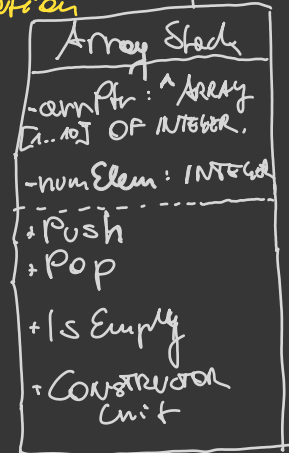 Array Stack
-arrPtr: ^ARRAY
[1...10] OF INTEGER.
-numElem: INTEGER
+Push
+Pop
+Is Empty
+CONSTRUCTOR
init